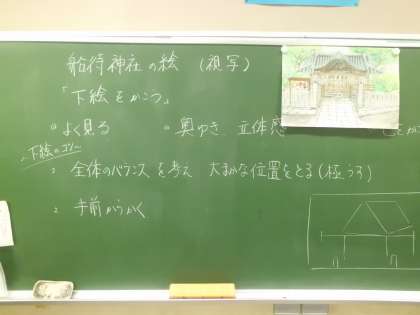 船待神社の絵 (視写)
「下絵をかこう」
○よく見る ○奥ゆき 立体感
~下絵のコツ~
全体のバランスを考え 大まかな位置をとる(極うす)
手前からかく